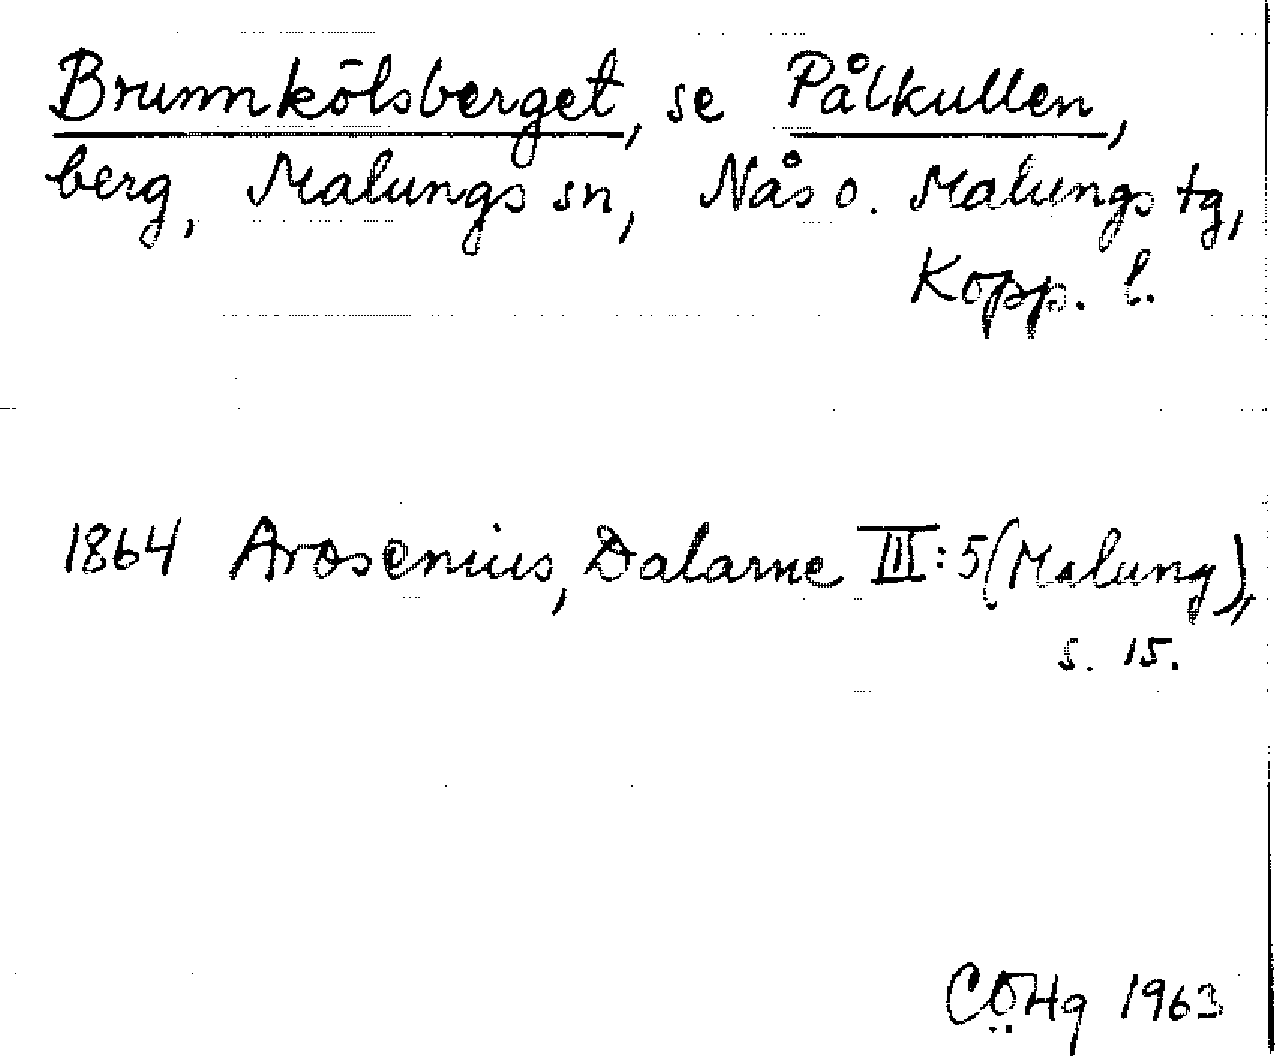 Brunnkölsberget, se Pålkullen,
berg, Malungs sn, Nås o. Malungs tg,
Kopp. l.
1864 Arosenius, Dalarne III:5 (Malung),
s. 15.
CÖHg 1963